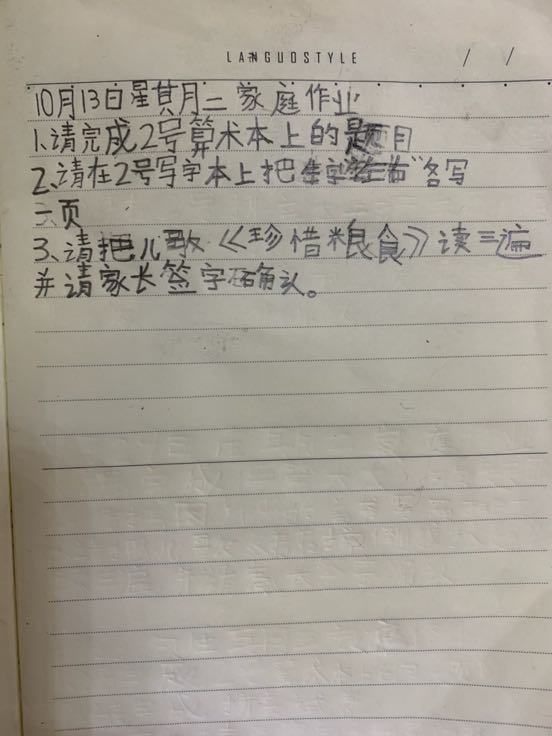 LANGUOSTYLE / /
10月13日星其月二家庭作业
1.请完成2号算术本上的题目
2.请在2号写字本上把"各写
一页
3.请把儿歌《珍惜粮食》读三遍
并请家长签字确认。